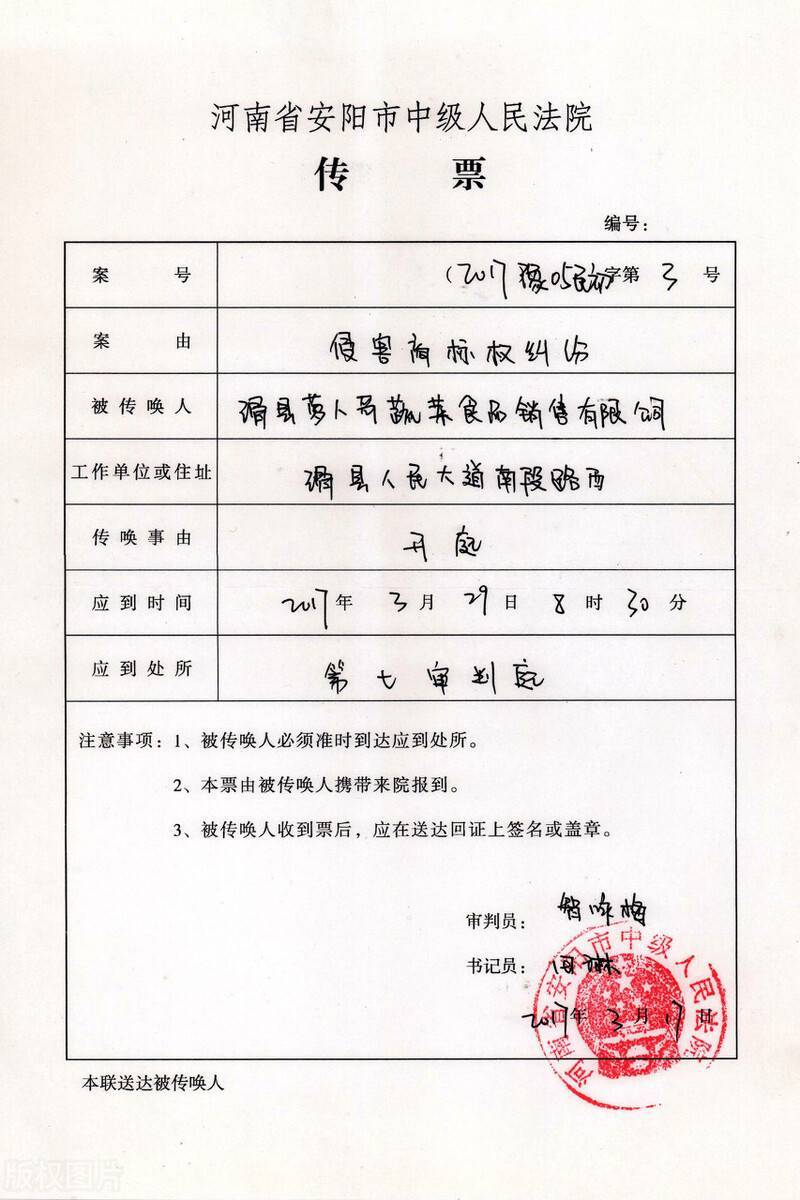 河南省安阳市中级人民法院
传 票
编号：
案 号 （2017豫05民初字第 3 号
案 由 侵害商标权纠纷
被传唤人 滑县萝人哥蔬菜食品销售有限公司
工作单位或住址 滑县人民大道南段路西
传唤事由 开庭
应到时间 2017年 3月 29日 8时 30分
应到处所 第七审判庭
注意事项：1、被传唤人必须准时到达应到处所。
2、本票由被传唤人携带来院报到。
3、被传唤人收到票后，应在送达回证上签名或盖章。
审判员：
书记员：
河南省安阳市中级人民法院
2017年 3月 17日
本联送达被传唤人
版权图片